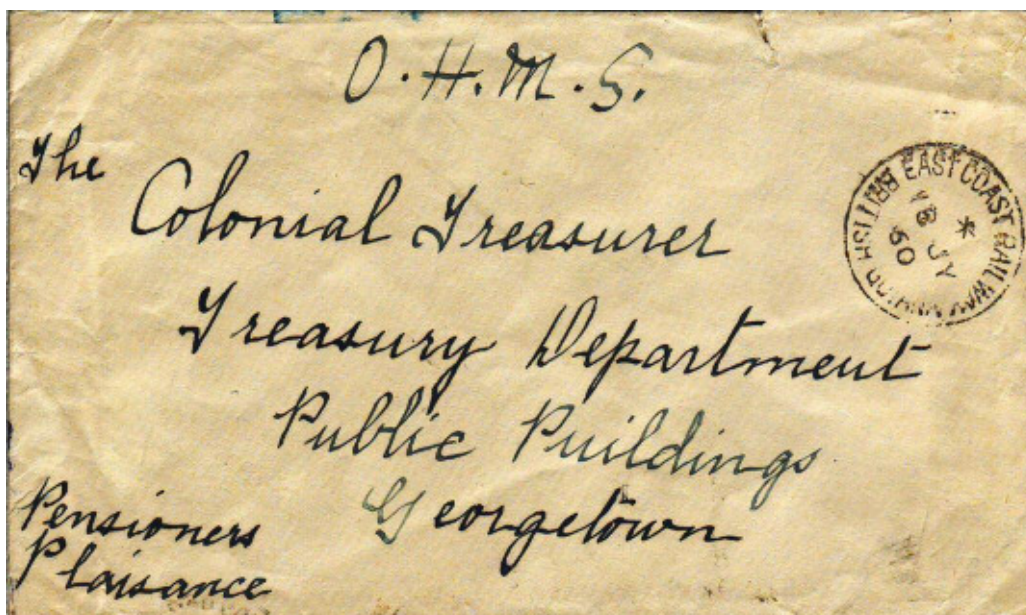 O.H.M.S.
The
Colonial Treasurer
Treasury Department
Public Puildings
Georgetown
Pensioners
Plaisance
EAST COAST RAILWAY
BRITISH
JY
60